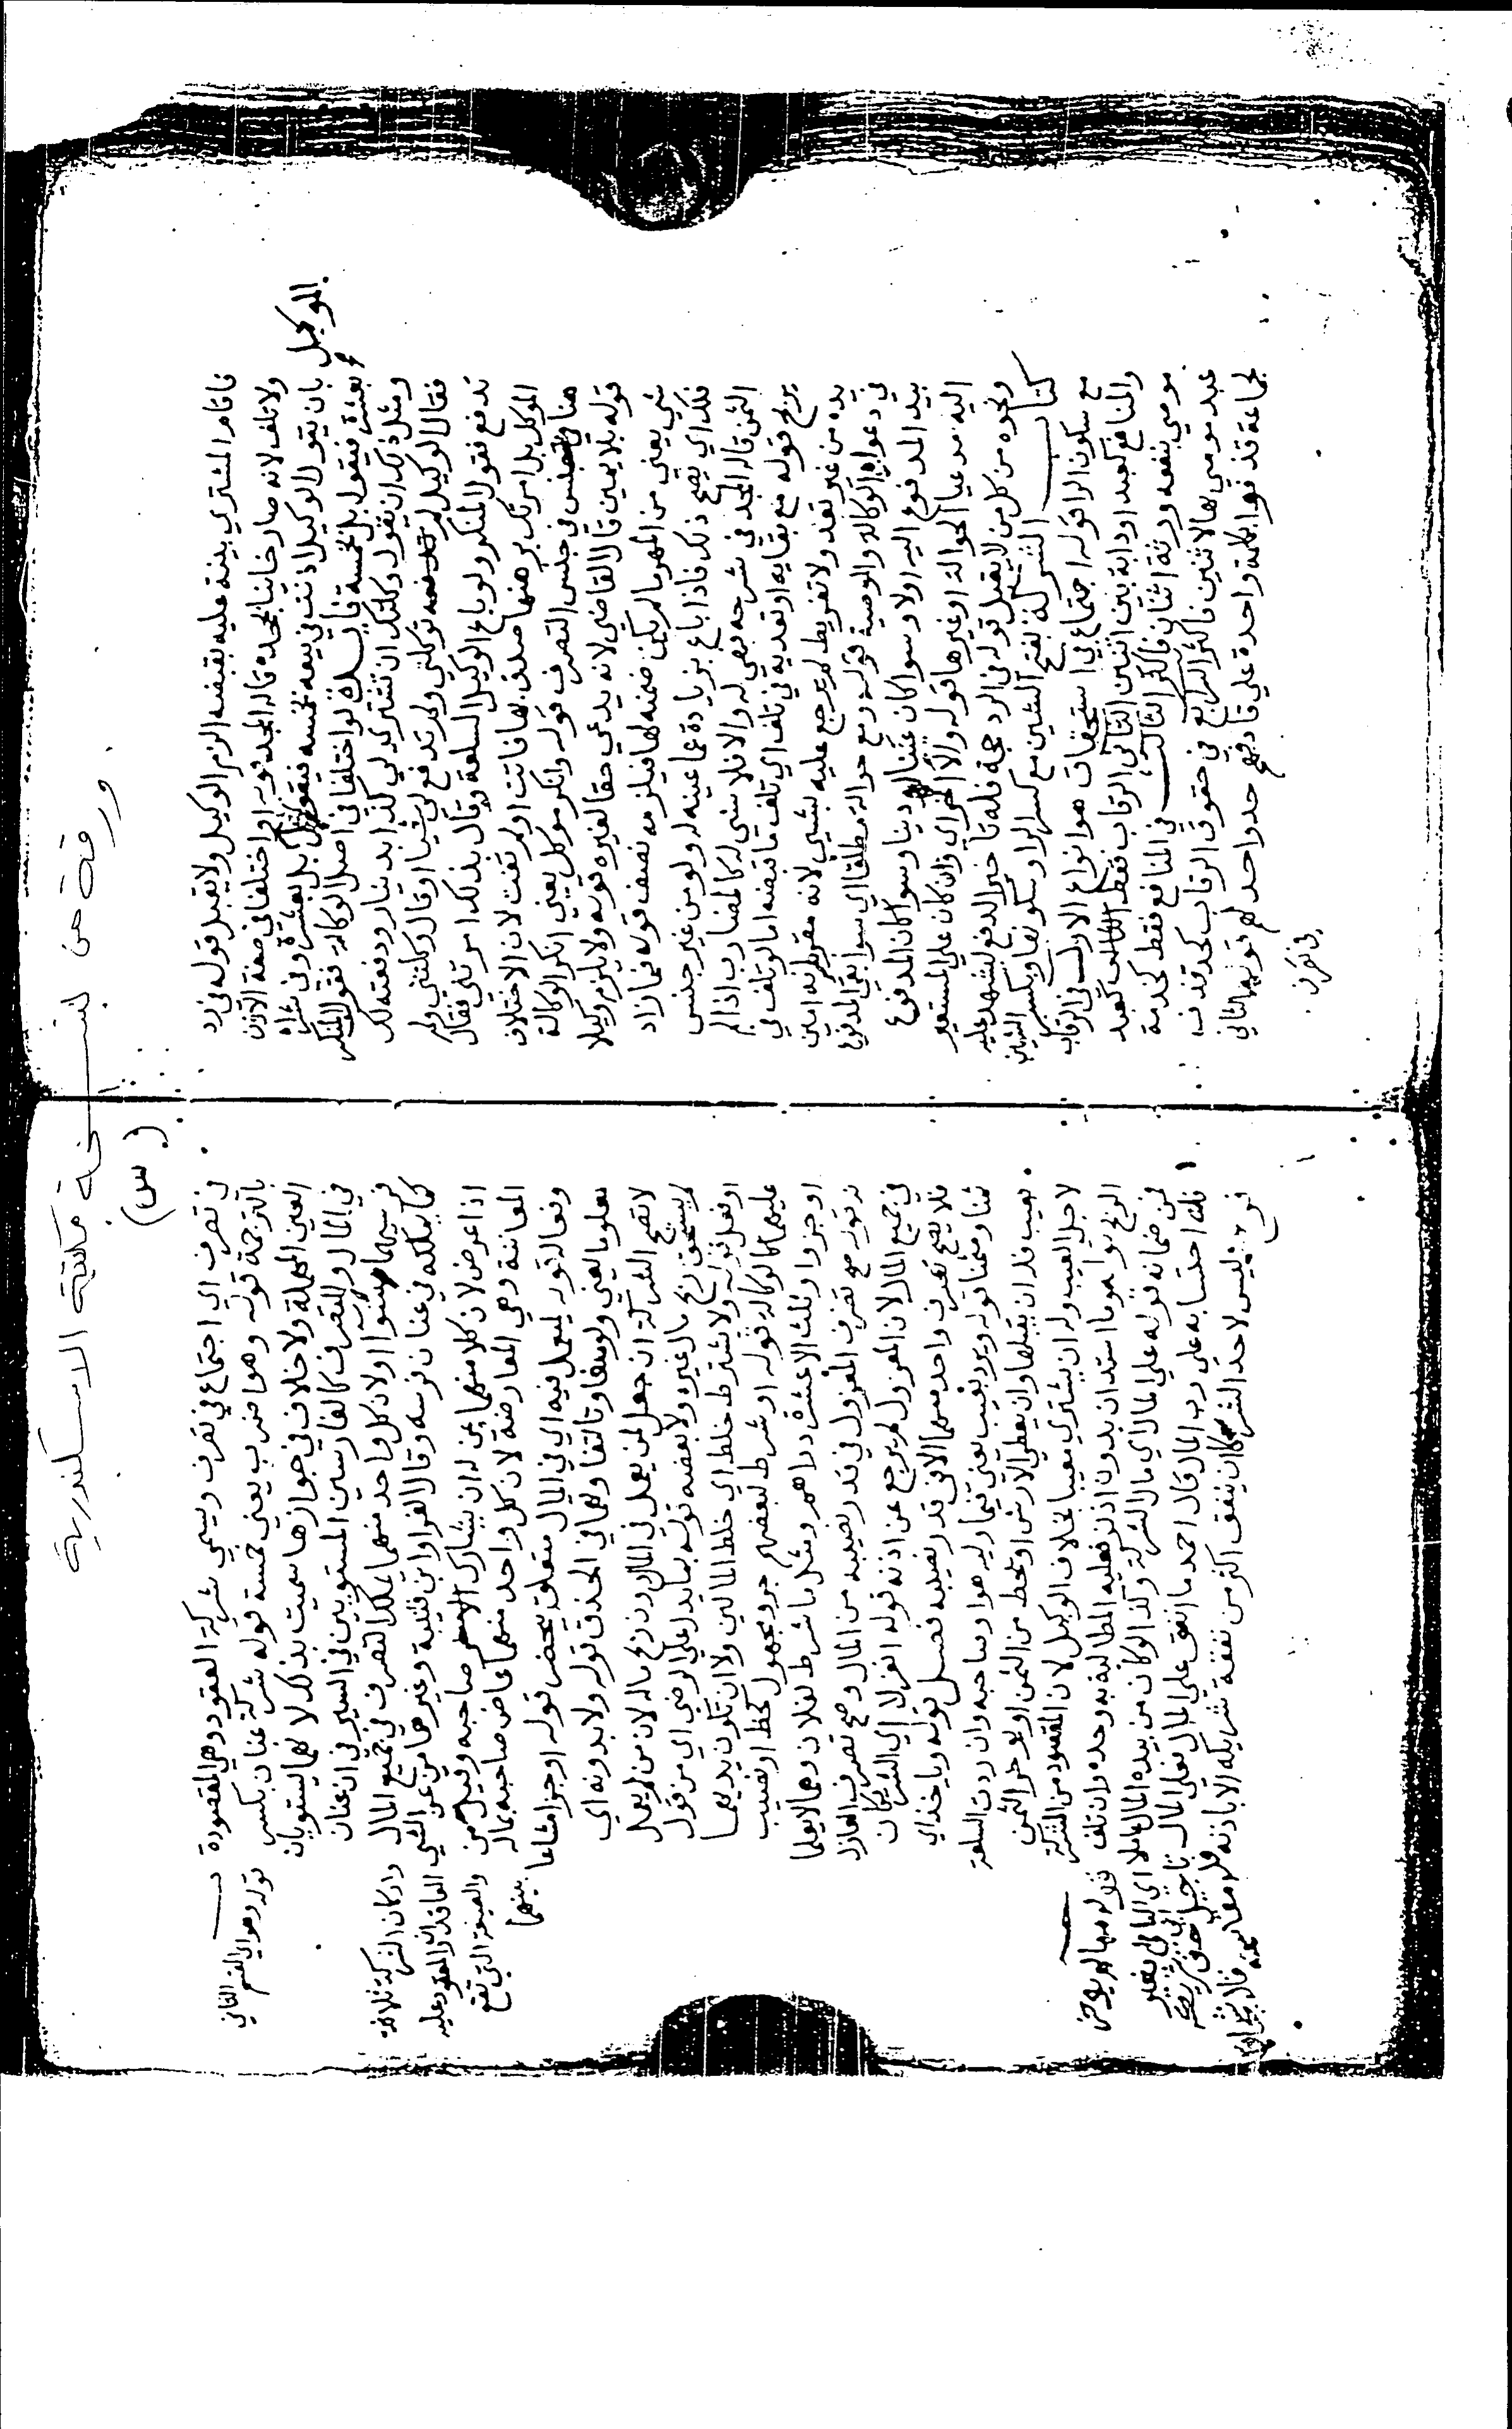 ورقة من نسخة مكتبة الاسكندرية
(س)
فاقام المشتري بينة عليه بقبضه الزم الوكيل ولا يقبل قوله في رد
ولا تلف لانه صار خاينا بجحده قاله المجد قوله او اختلفا في صفة الاذن
بان يقول الوكيل اذنت في بيعه بخمسة فيقول بل بعشرة وفي شراه
بعشرة فيقول بل بخمسة فان اختلفا في اصل الوكالة فقول المنكر
الموكل
ومثل ذلك ان يقول وكلتك ان تشتري لي كذا بدينار ودفعته لك
فقال الوكيل لم تدفعه توكلني ولم تدفع لي شيا او قال وكلتني ولم
تدفع فقول المنكر ولو باع الوكيل السلعة وقال بذلك امرتني فقال
الموكل بل امرتك برهنها صدق بها فاتت او لم تفت لان الاختلاف
هنا في جنس التصرف قوله وانكر موكل يعني انكر الوكالة
قوله بلا يمين قال القاضي لانه يدعي حقا لغيره قوله ولا يلزم وكيلا
شي يعني من المهر ما لم يكن ضمنه لها فيلزمه نصف قوله فما زاد
فلك اي يصح ذلك فاذا باع بزيادة عما عينه له ولو من غير جنس
الثمن قاله المجد في شرحه فهي له والا فلا شي له كالمضارب اذا لم
يربح قوله مع بقايه او تعديه في تلف اي تلف ما قبضه اما لو تلف في
يده من غير تعد ولا تفريط لم يرجع عليه بشي لانه مقر انه امين
في دعواه الوكالة والوصية قوله ومع حوالة مطلقا اي سوا بقي المدفوع
بيد المدفوع اليه اولا وسوا كان عينا او دينا وسوا كان المدفوع
اليه مدعيا الحوالة او غيرها قوله والا اخر اي وان كان علي المستعير
ونحوه من كل من لا يقبل قوله في الرد حجة فله تاخير الدفع ليشهد عليه
كتاب الشركة بفتح الشين مع كسر الرا وسكونها وبكسر الشين
مع سكون الرا قوله اجتماع في استحقاق هو انواع الاول في الرقاب
والمنافع كعبد او دابة بين اثنين الثاني الرقاب فقط كعبد
موصي بنفعه ورثه اثنان فاكثر الثالث في المنافع فقط كخدمة
عبد موصي بها لاثنين فاكثر الرابع في حقوق الرقاب كحد قذف
لجماعة قذفوا بكلمة واحدة علي قاذفهم حد واحد لهم قوله الثاني
في تصرف
في تصرف اي اجتماع في تصرف ويسمي شركة العقود وهي المقصودة
بالترجمة قوله وهو اضرب يعني خمسة قوله شركة عنان بكسر
العين المهملة ولا خلاف في جوازها سميت بذلك لانهما يستويان
في المال والتصرف كالفارسين المستويين في السير فان عنان
فرسيهما سوا او لان كل واحد منهما يملك التصرف في جميع المال
كما يملك في عنان فرسه وقال الفرا وابن قتيبة وغيرهما من عن الشي
اذا عرض لان كلا منهما عن له ان يشارك صاحبه وقيل من
المعاننة وهي المعارضة لان كل واحد منهما عارض صاحبه بماله
وفعاله قوله ليعمل فيه اي في المال متعلق بيحضر قوله او جزا مشاعا
معلوما يعني ولو متفاوتا لتفاوتهما في الحذق قوله ولا بدونه اي
لا تصح الشركة ان جعل لمن يعمل في المال دون ربح ماله لان من لم يعمل
لم يستحق ربح مال غيره ولا بعضه قوله بما يدل علي الرضي اي من قول
او فعل قوله ولا تشترط خلط اي خلط المالين ولا ان تكون يديهما
عليهما كالوكالة قوله او شرط لبعضهم جزو مجهول كحظ او نصيب
او جزوا وثلث الا عشرة دراهم ومثل ما شرط لفلان وهما لا يعلما
نه قوله صح تصرف المعزول في قدر نصيبه من المال وصح تصرف العازل
في جميع المال لان المعزول لم يرجع عن اذنه قوله انعزلا اي الشريكان
فلا يصح تصرف واحد منهما الا في قدر نصيبه فصل قوله وياخذ اي
ثمنا ومثمنا قوله ويرد بعيب يعني فيما وليه هو او صاحبه وان ردت السلعة
بعيب فله ان يقبلها وان يعطي الارش او يحط من الثمن او يوخر الثمن
لاجل العيب وله ان يشتري معيبا بخلاف الوكيل لان المقصود من الشركة
الربح قوله وما استدان بدون اذن فعليه المطالبة به وحده وان تلف
فمن ضمانه قوله علي المال اي مال الشركة وكذا لو كان من بيده المال
تلك احتسابه علي رب المال قال احمد ما انفق علي المال فعلي المال
فرع وليس لاحد الشركا ان ينفق اكثر من نفقة شريكه الا باذنه
قوله وهو اي القسم الثاني
واركان الشركة ثلاثة
العاقدان والمعقود عليه
والصيغة التي تقع
بينهما